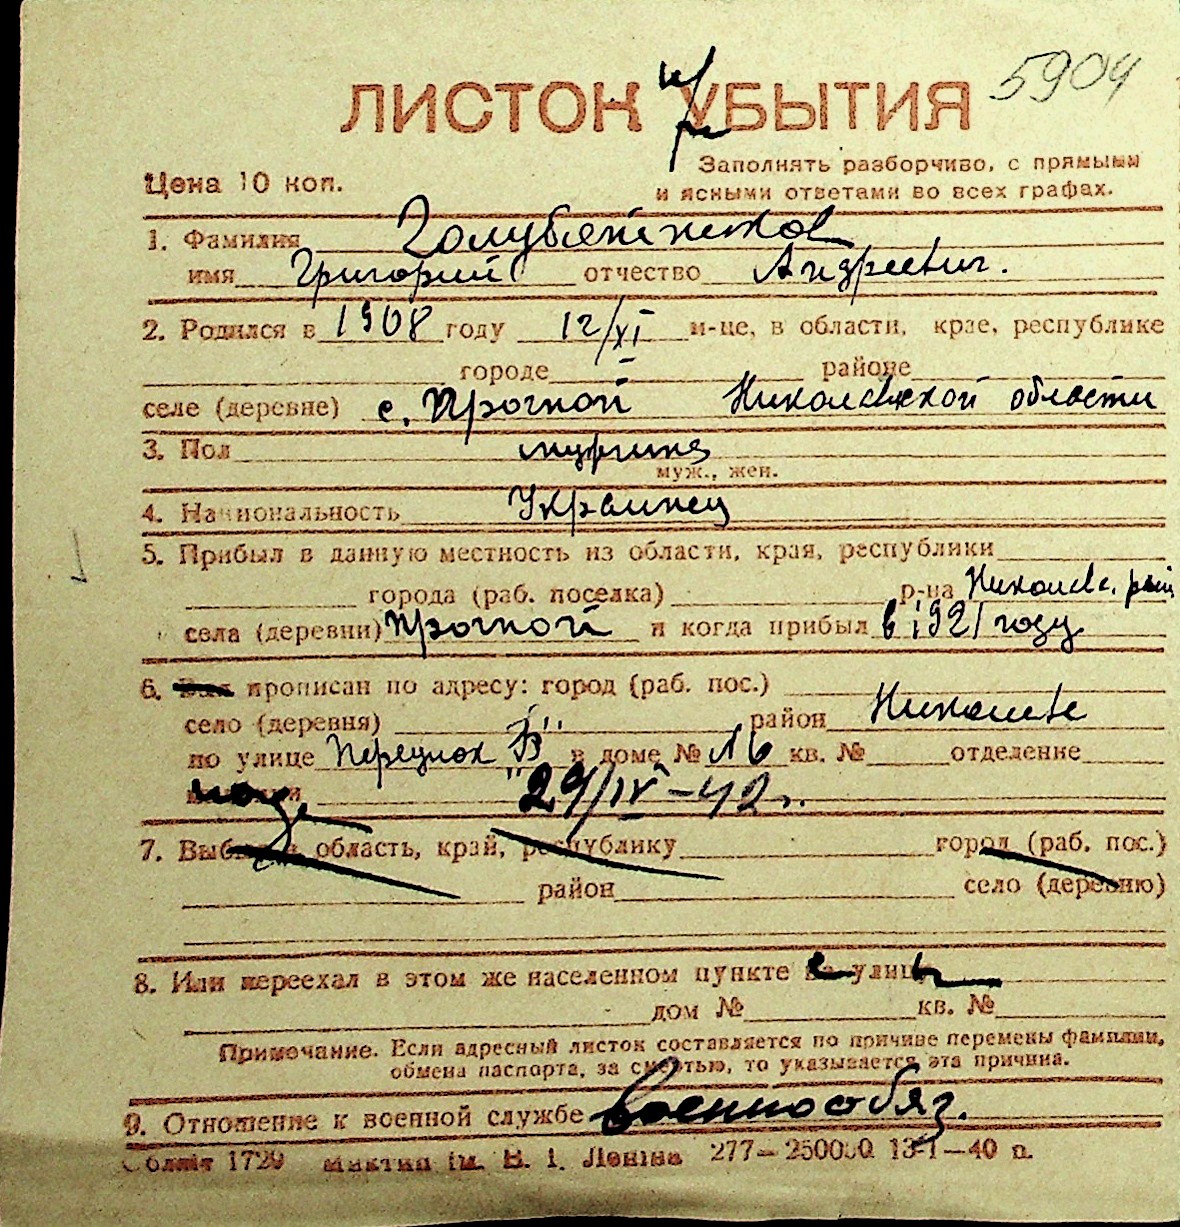 5904
ЛИСТОК УБЫТИЯ
Цена 10 коп.
Заполнять разборчиво, с прямыми
и ясными ответами во всех графах.
1. Фамилия Голубятников
имя Григорий отчество Андреевич.
2. Родился в 1908 году 12/XI м-це, в области, крае, республике
городе районе
селе (деревне) с. Прогной Николаевской области
3. Пол мужчина
муж., жен.
4. Национальность Украинец
5. Прибыл в данную местность из области, края, республики
города (раб. поселка) р-на Николаевс. рай
села (деревни) Прогной и когда прибыл в 1921 году
6. прописан по адресу: город (раб. пос.)
село (деревня) район Николаев
по улице "Б" в доме № 16 кв. № отделение
"29/IV-42 г.
7. область, край, республику город (раб. пос.)
район село (деревню)
8. Или переехал в этом же населенном пункте улице
дом № кв. №
Примечание. Если адресный листок составляется по причине перемены фамилии,
обмена паспорта, за смертью, то указывается эта причина.
9. Отношение к военной службе Военнообяз.
Обліт 1729 ім. В. І. Леніна 277—250000 13-I—40 р.